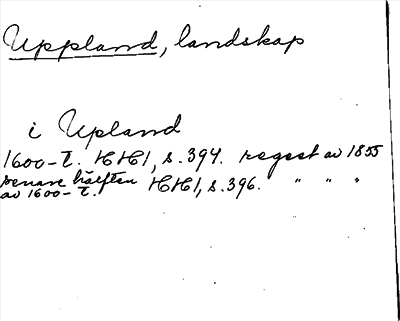 Uppland, landskap
i Upland
1600-t. HH1, s. 394. regest av 1855
senare hälften HH1, s. 396. " " "
av 1600-t.